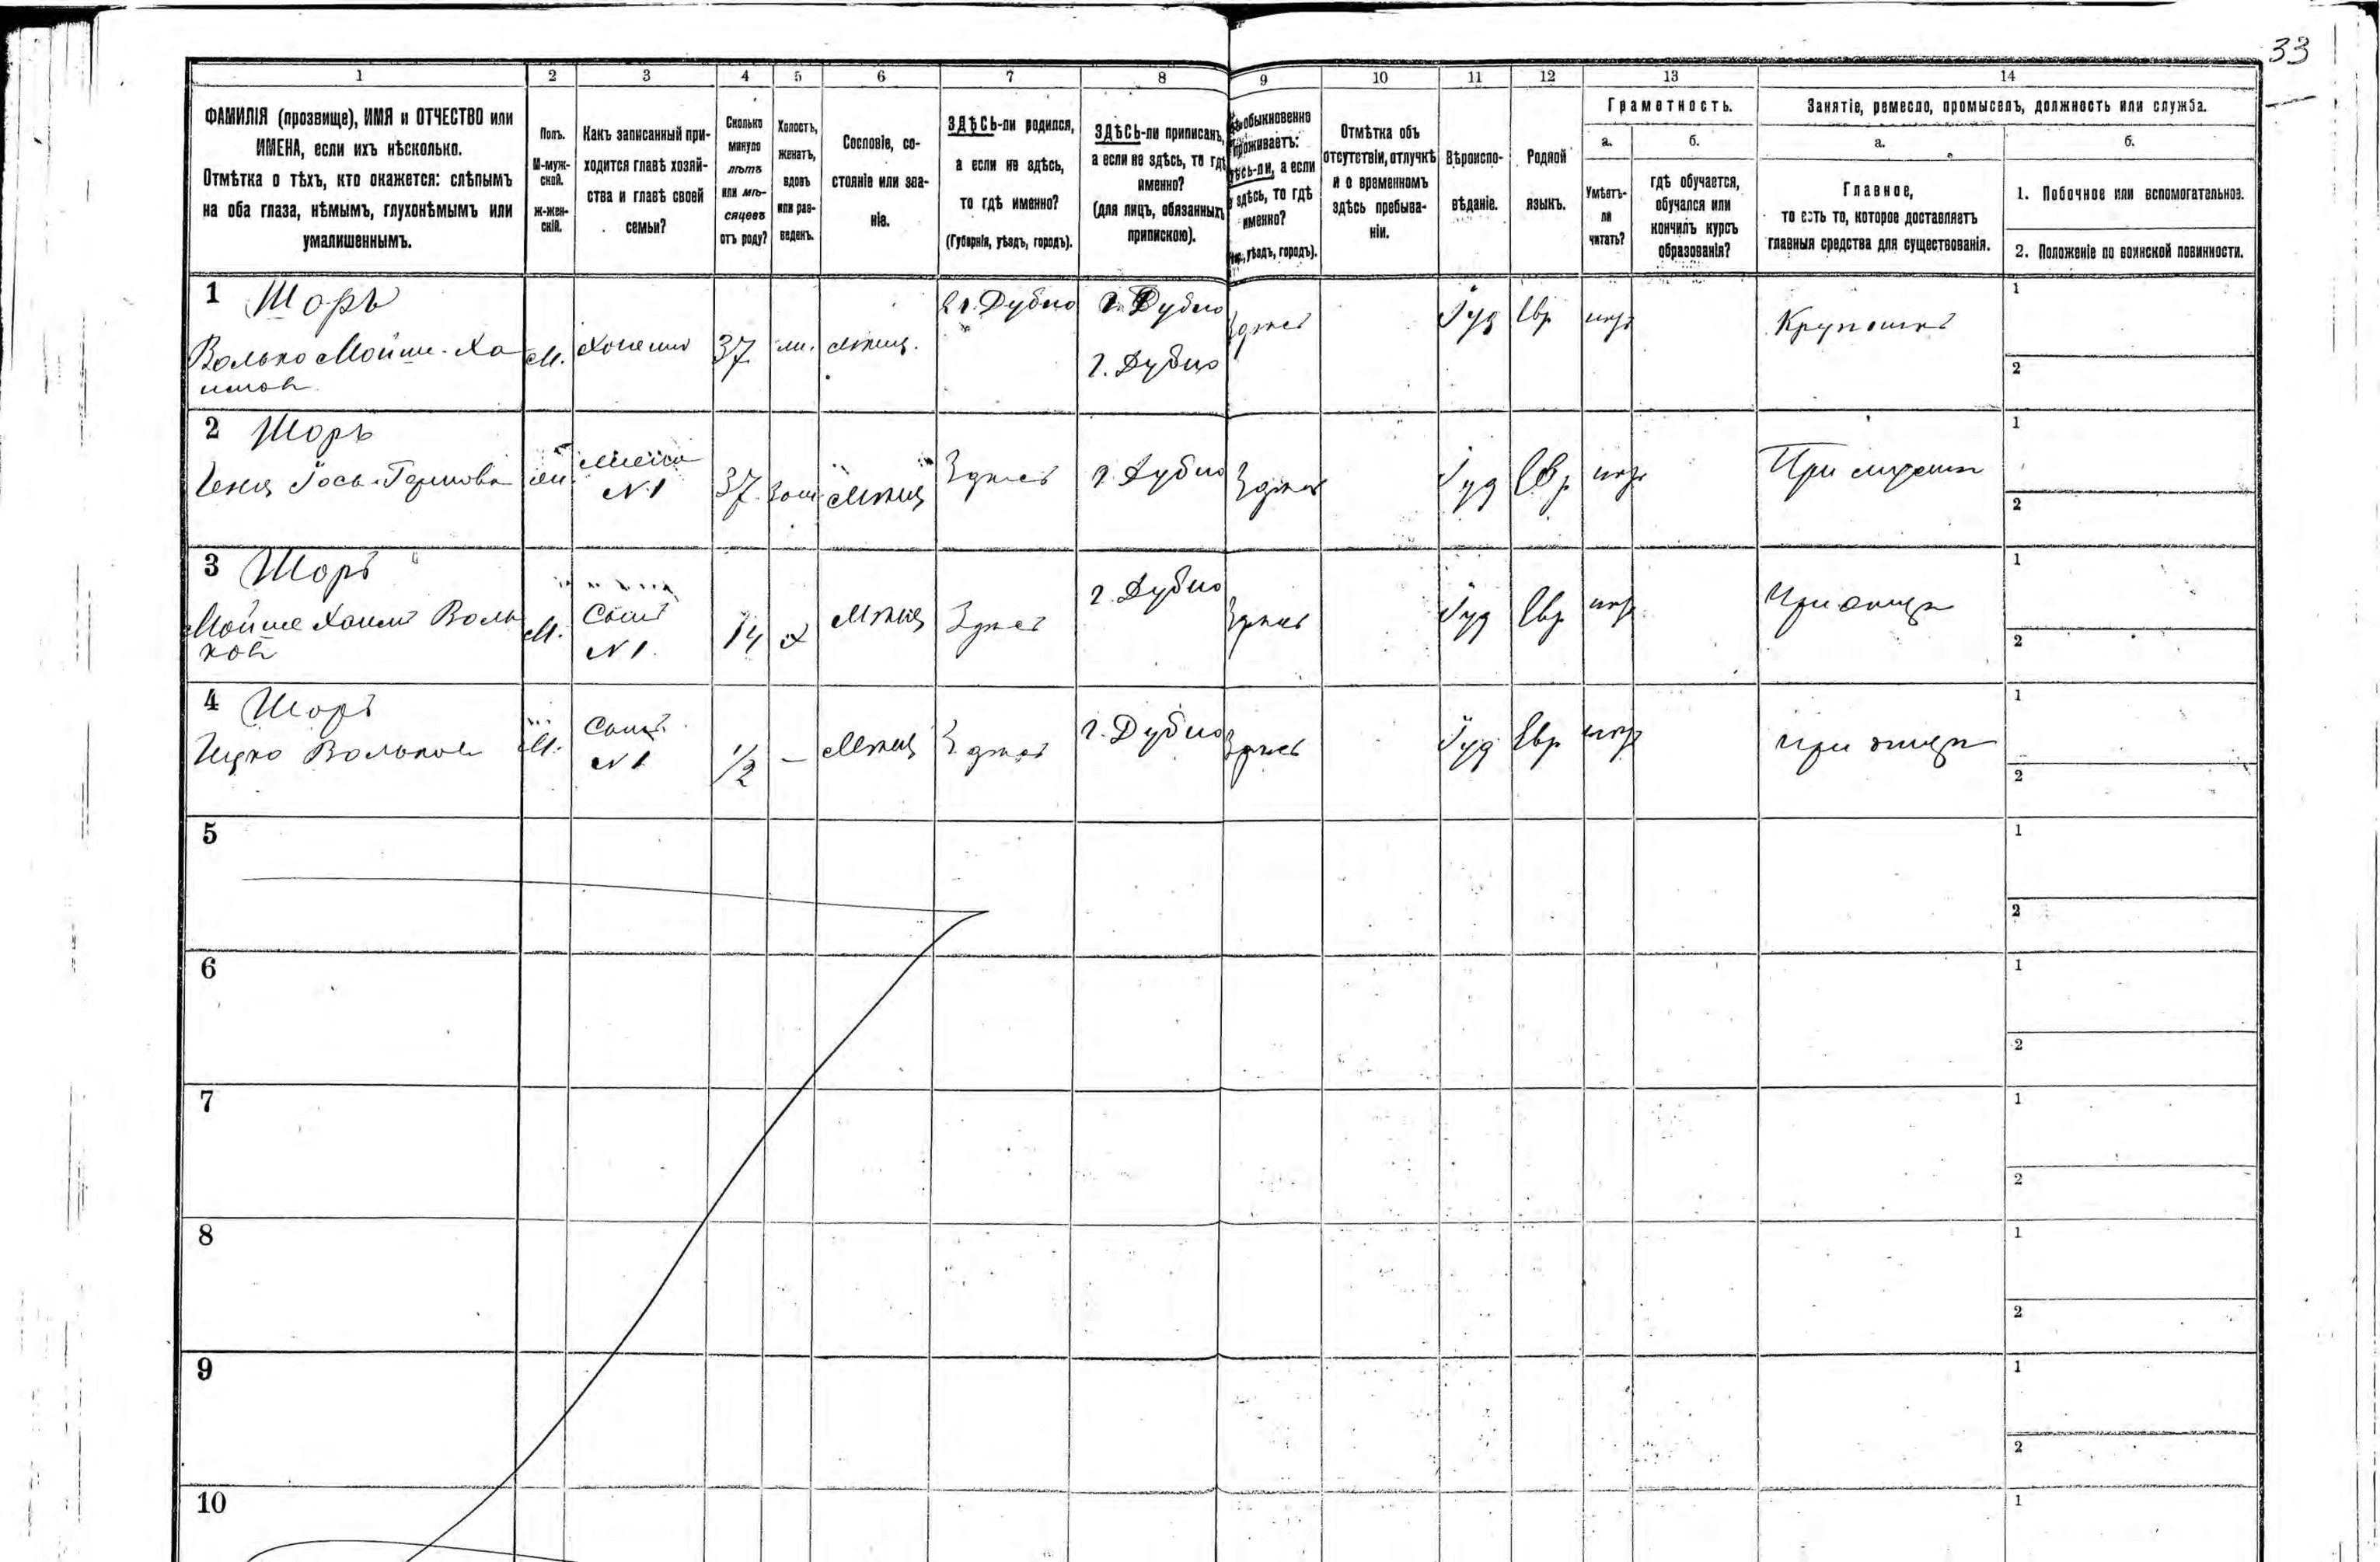 33
1 2 3 4 5 6 7 8 9 10 11 12 13 14
ФАМИЛІЯ (прозвище), ИМЯ и ОТЧЕСТВО или
ИМЕНА, если ихъ нѣсколько.
Отмѣтка о тѣхъ, кто окажется: слѣпымъ
на оба глаза, нѣмымъ, глухонѣмымъ или
умалишеннымъ.
Полъ.
М-муж-
ской.
Ж-жен-
скій.
Какъ записанный при-
ходится главѣ хозяй-
ства и главѣ своей
семьи?
Сколько
минуло
лѣтъ
или мѣ-
сяцевъ
отъ роду?
Холостъ,
женатъ,
вдовъ
или раз-
веденъ.
Сословіе, со-
стояніе или зва-
ніе.
ЗДѢСЬ-ли родился,
а если не здѣсь,
то гдѣ именно?
(Губернія, уѣздъ, городъ).
ЗДѢСЬ-ли приписанъ,
а если не здѣсь, то гдѣ
именно?
(для лицъ, обязанныхъ
припискою).
обыкновенно
проживаетъ:
а если
здѣсь, то гдѣ
именно?
уѣздъ, городъ).
Отмѣтка объ
отсутствіи, отлучкѣ
и о временномъ
здѣсь пребыва-
ніи.
Вѣроиспо-
вѣданіе.
Родной
языкъ.
Грамотность.
а.
Умѣетъ-
ли
читать?
б.
гдѣ обучается,
обучался или
кончилъ курсъ
образованія?
Занятіе, ремесло, промыселъ, должность или служба.
а.
Главное,
то есть то, которое доставляетъ
главныя средства для существованія.
б.
1. Побочное или вспомогательное.
2. Положеніе по воинской повинности.
1 Шоръ
Волько Мойше-Ха
имов
М.
37
г. Дубно
г. Дубно
г. Дубно
Здѣсь
Іуд
Евр
1
2
2 Шоръ
N 1
37
Здѣсь
г. Дубно
Здѣсь
Іуд
Евр
1
2
3 Шоръ
Мойше Хаимъ Воль
ков
М.
Сынъ
N 1.
14
Х
Мѣщ
Здѣсь
г. Дубно
Здѣсь
Іуд
Евр
При отцѣ
1
2
4 Шоръ
Ицко Вольков
М.
Сынъ
N 1
1/2
—
Мѣщ
Здѣсь
г. Дубно
Здѣсь
Іуд
Евр
при отцѣ
1
2
5
1
2
6
1
2
7
1
2
8
1
2
9
1
2
10
1